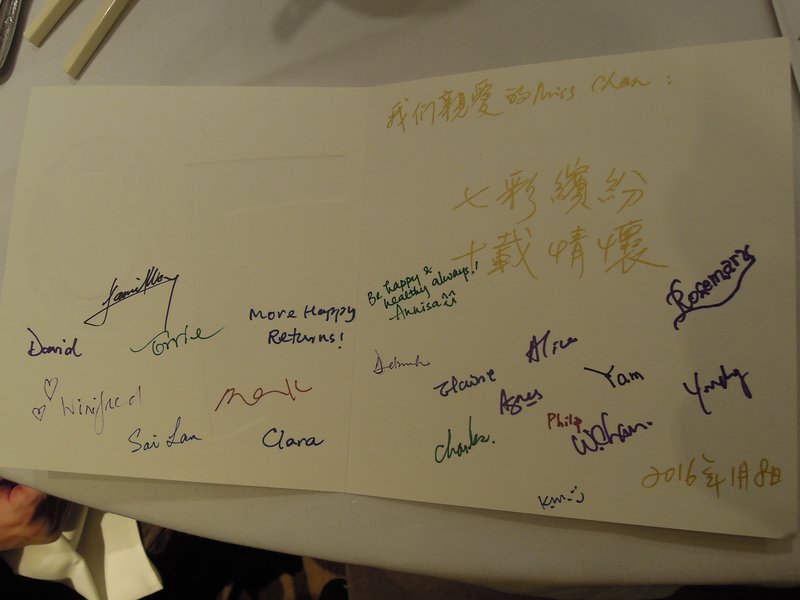 我们親愛的Miss Chan:
七彩繽紛
十載情懷
Be happy &
healthy always!!
Annisa
Rosemary
More Happy
Returns!
David
Alice
Elaine
Yam
Agnes
Winifred
Mark
Philip
W.Chan.
Charles.
Sai Lan
Clara
K.M.
2016年1月8日